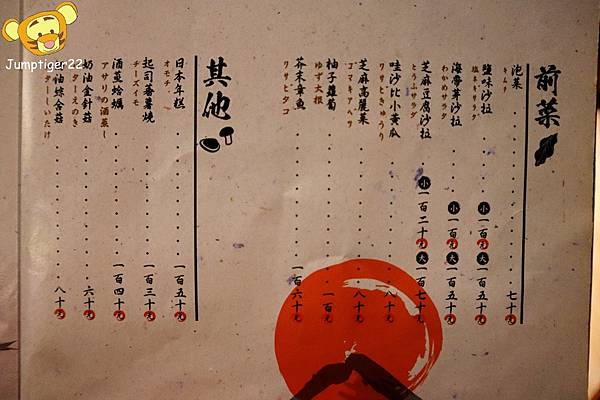 Jumptiger22
前菜
泡菜 七十元
キムチ
鹽味沙拉 小 一百元 大 一百五十元
塩キキリダ
海帶芽沙拉 小 一百元 大 一百五十元
わかめサラダ
芝麻豆腐沙拉 小 一百二十元 大 一百七十元
とうふサラダ
哇沙比小黃瓜 八十元
ワサときゅうり
芝麻高麗菜 八十元
ゴマキアベツ
柚子蘿蔔 一百元
ゆず大根
芥末章魚 一百六十元
ワサヒタコ
其他
日本年糕 一百五十元
オモチ
起司蕃薯燒 一百三十元
チーズイモ
酒蒸蛤蠣 一百四十元
アサリの酒蒸し
奶油金針菇 六十元
ターえのき
油綜合菇 八十元
ターしいたけ